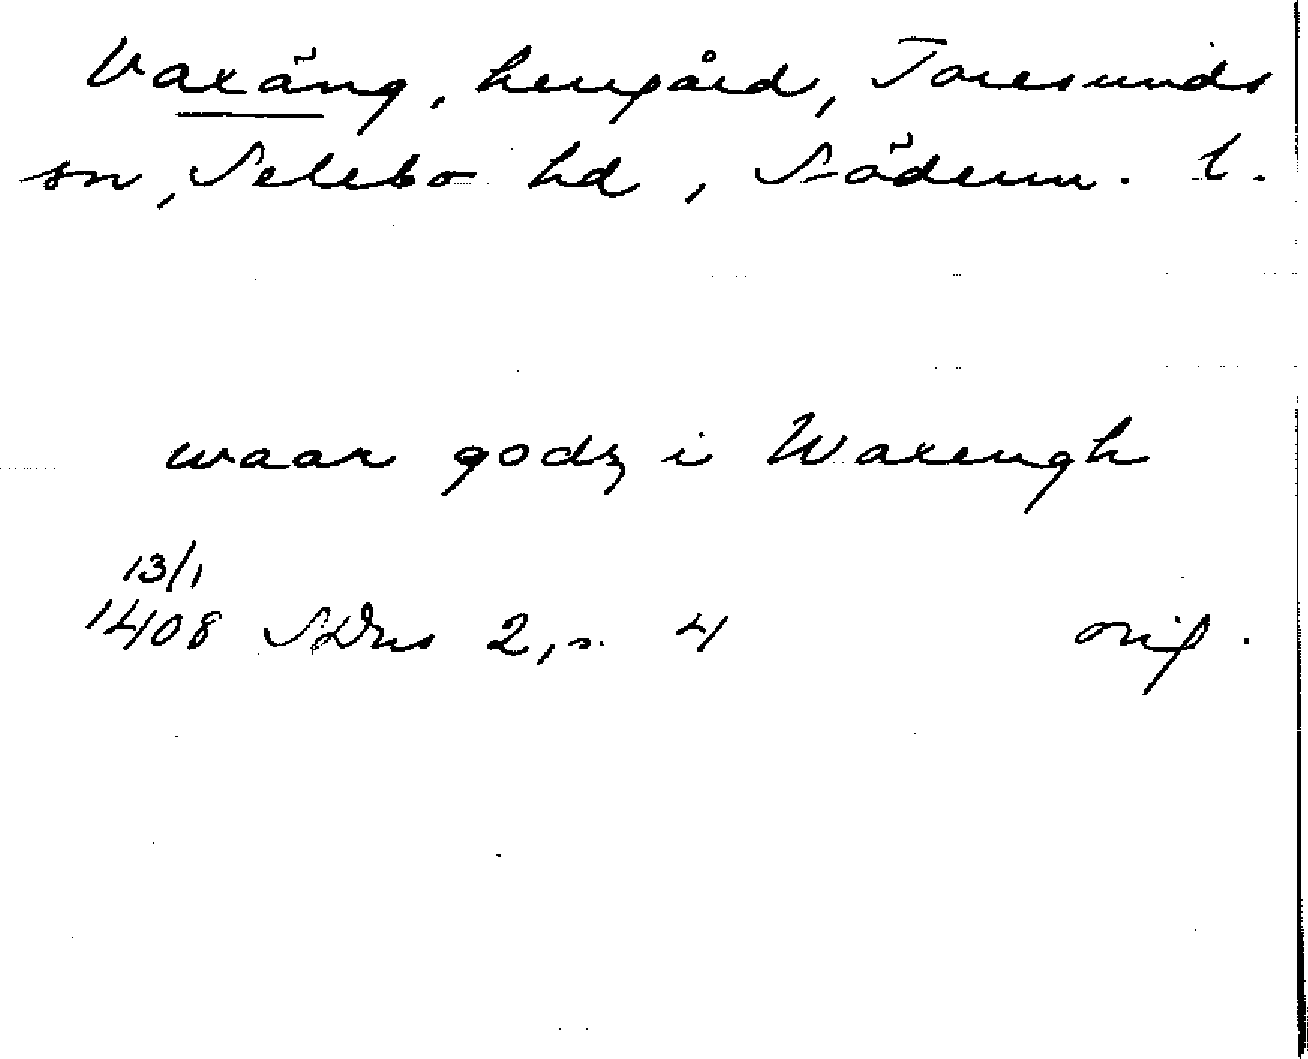 Vaxäng, herrgård, Toresunds
sn, Selebo hd, Söderm. l.
waar godz i Waxengh
13/1
1408 SDns 2, s. 4 orig.